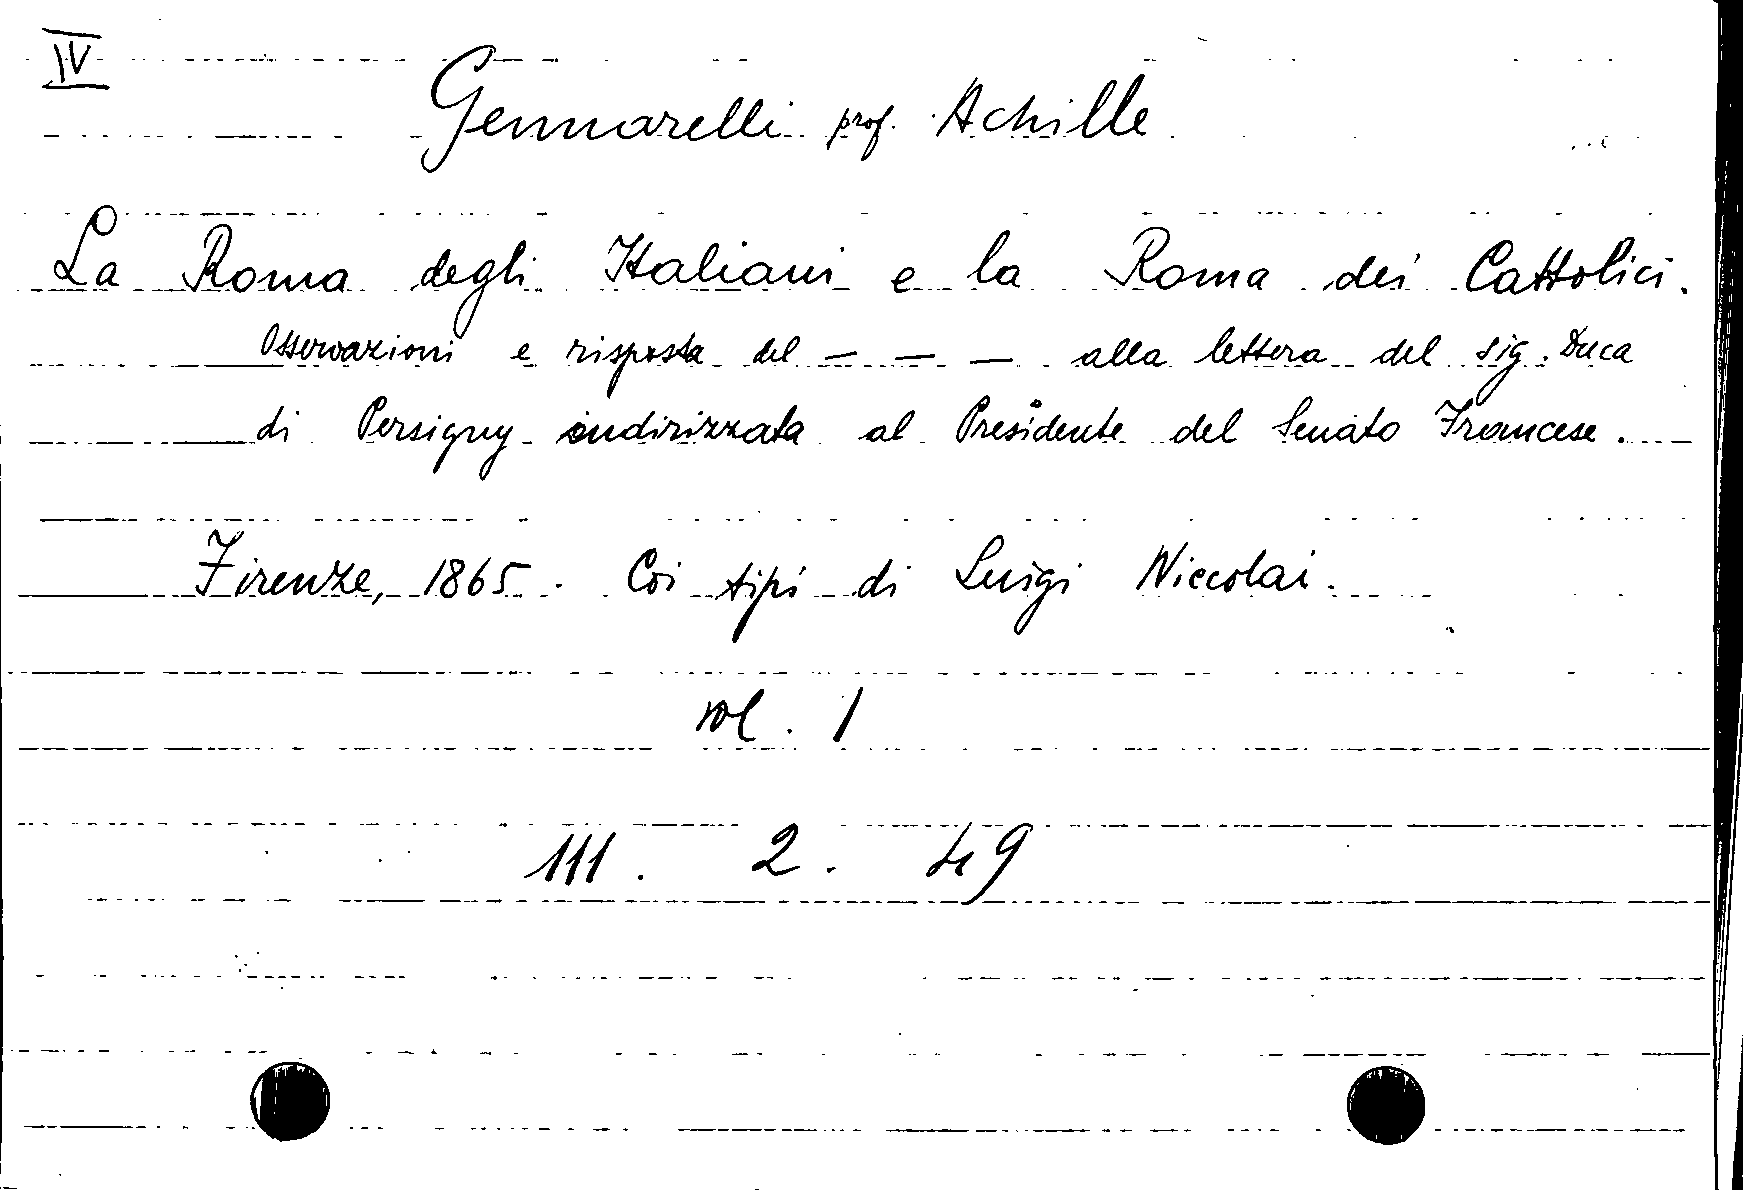 IV
Gennarelli prof. Achille
La Roma degli Italiani e la Roma dei Cattolici.
Osservazioni e risposta del — — — alla lettera del sig. Duca
di Persigny indirizzata al Presidente del Senato Francese.
Firenze, 1865. Coi tipi di Luigi Niccolai.
vol. 1
111. 2. 49